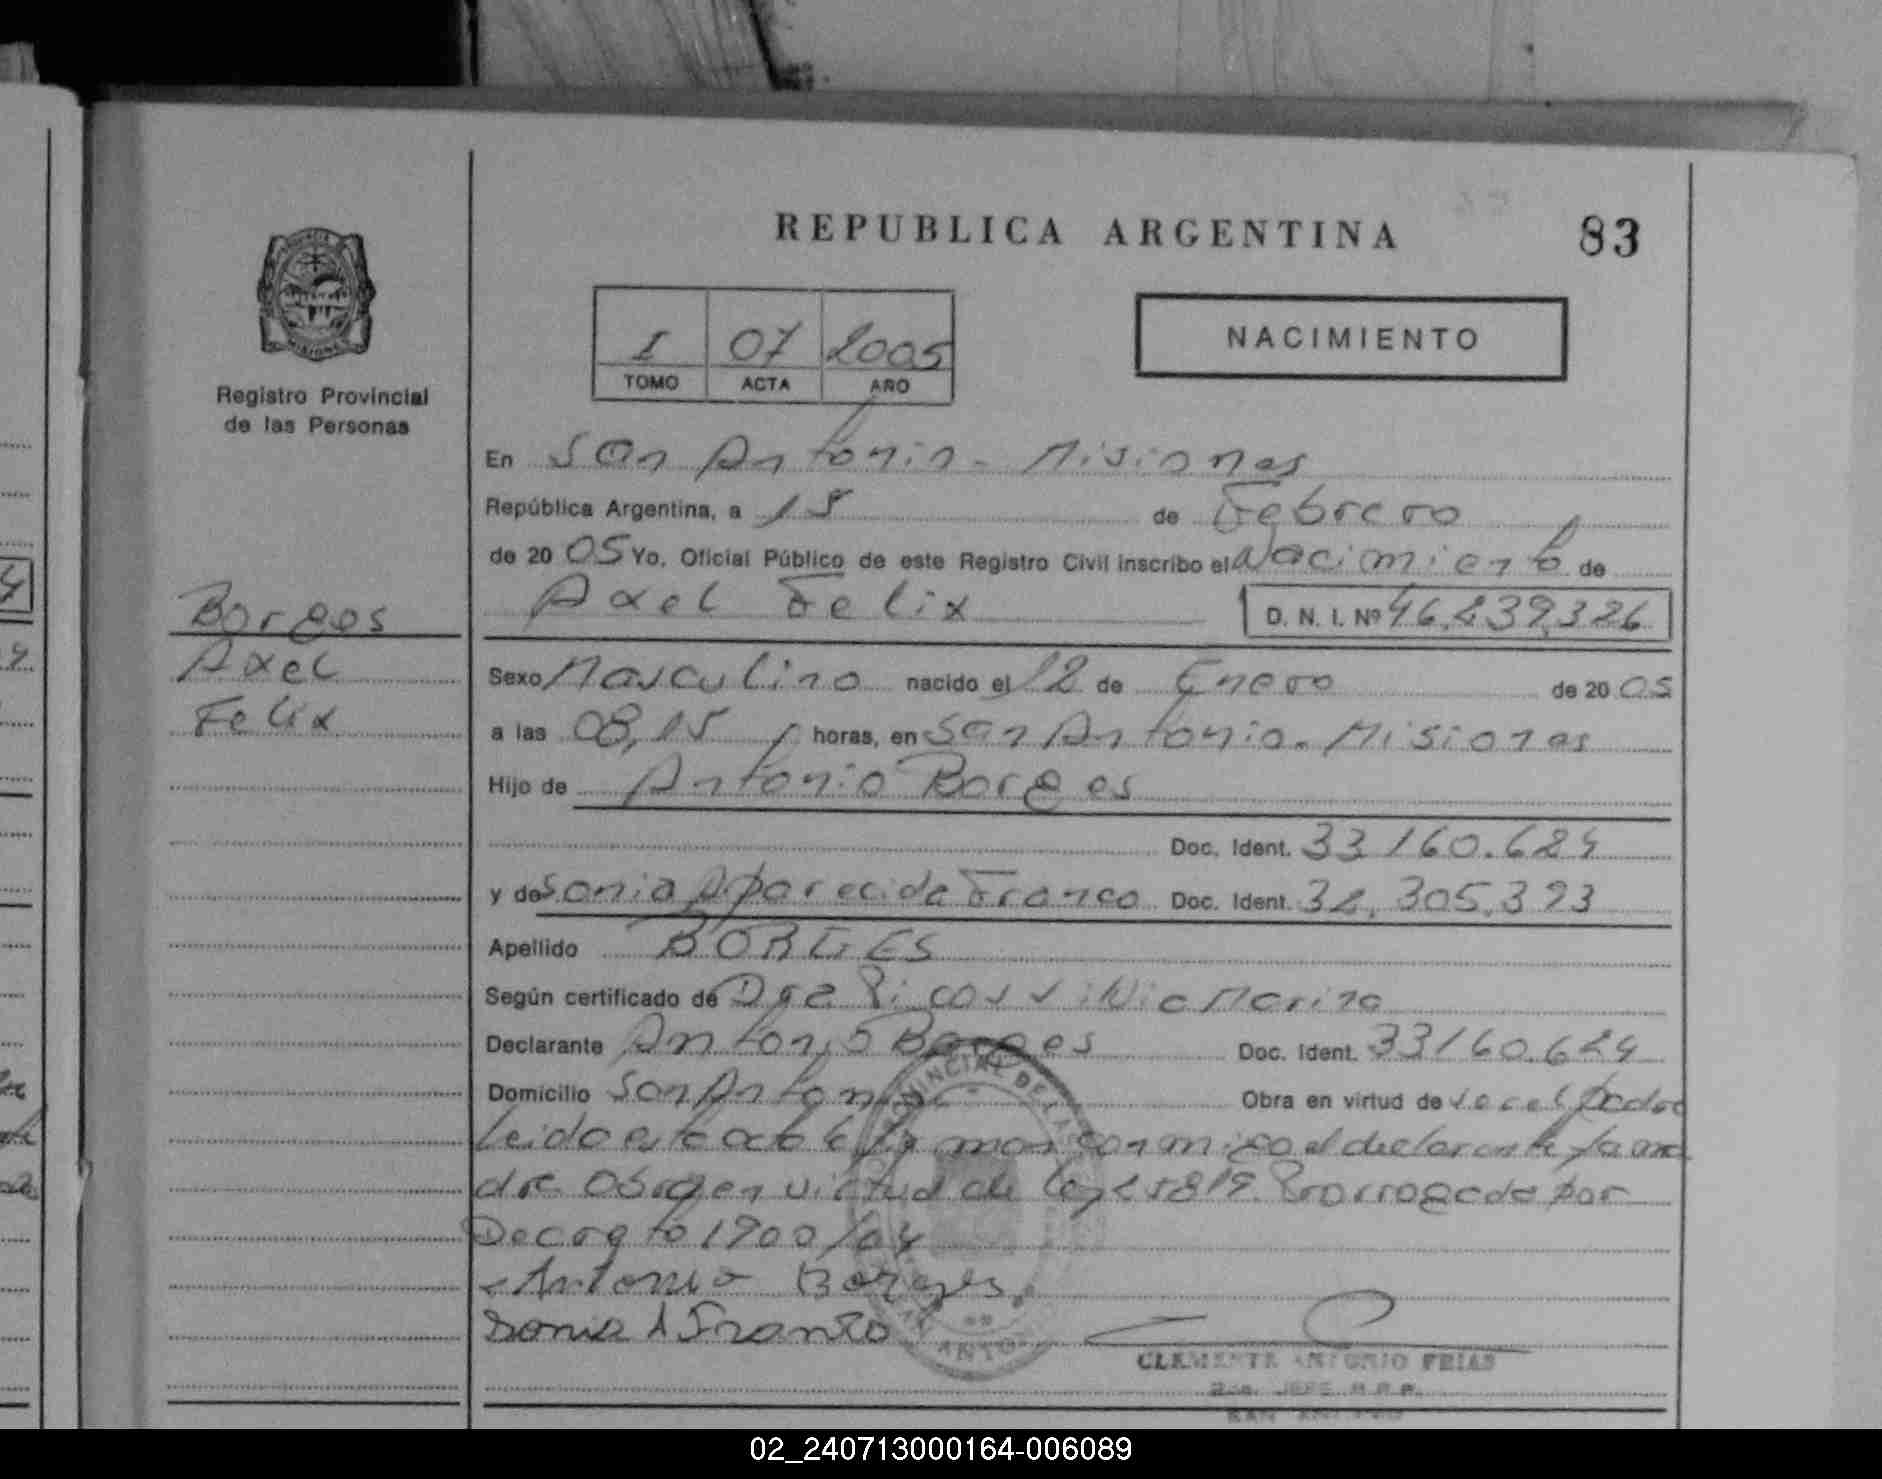 REPUBLICA ARGENTINA
83
I 07 2005
TOMO ACTA AÑO
NACIMIENTO
MISIONES
Registro Provincial
de las Personas
Borges
Axel
Felix
En San Antonio - Misiones
República Argentina, a 15 de Febrero
de 20 05 Yo, Oficial Público de este Registro Civil inscribo el Nacimiento de
Axel Felix D. N. I. Nº 46.239.326
Sexo Masculino nacido el 12 de Enero de 20 05
a las 08,15 horas, en San Antonio - Misiones
Hijo de Antonio Borges
Doc. Ident. 33.160.624
y de Sonia Aparecida Franco Doc. Ident. 32.305.393
Apellido BORGES
Según certificado de Dra Marina
Declarante Antonio Borges Doc. Ident. 33160.624
Domicilio San Antonio Obra en virtud de ser el padre
Leido este acta la firman conmigo el declarante y la ma
dre Obra en virtud de Ley 25819 Prorrogada por
Decreto 1900/04
Antonio Borges
Sonia A Franco
CLEMENTE ANTONIO FRIAS
JEFE R.P.P.
SAN ANTONIO
02_240713000164-006089